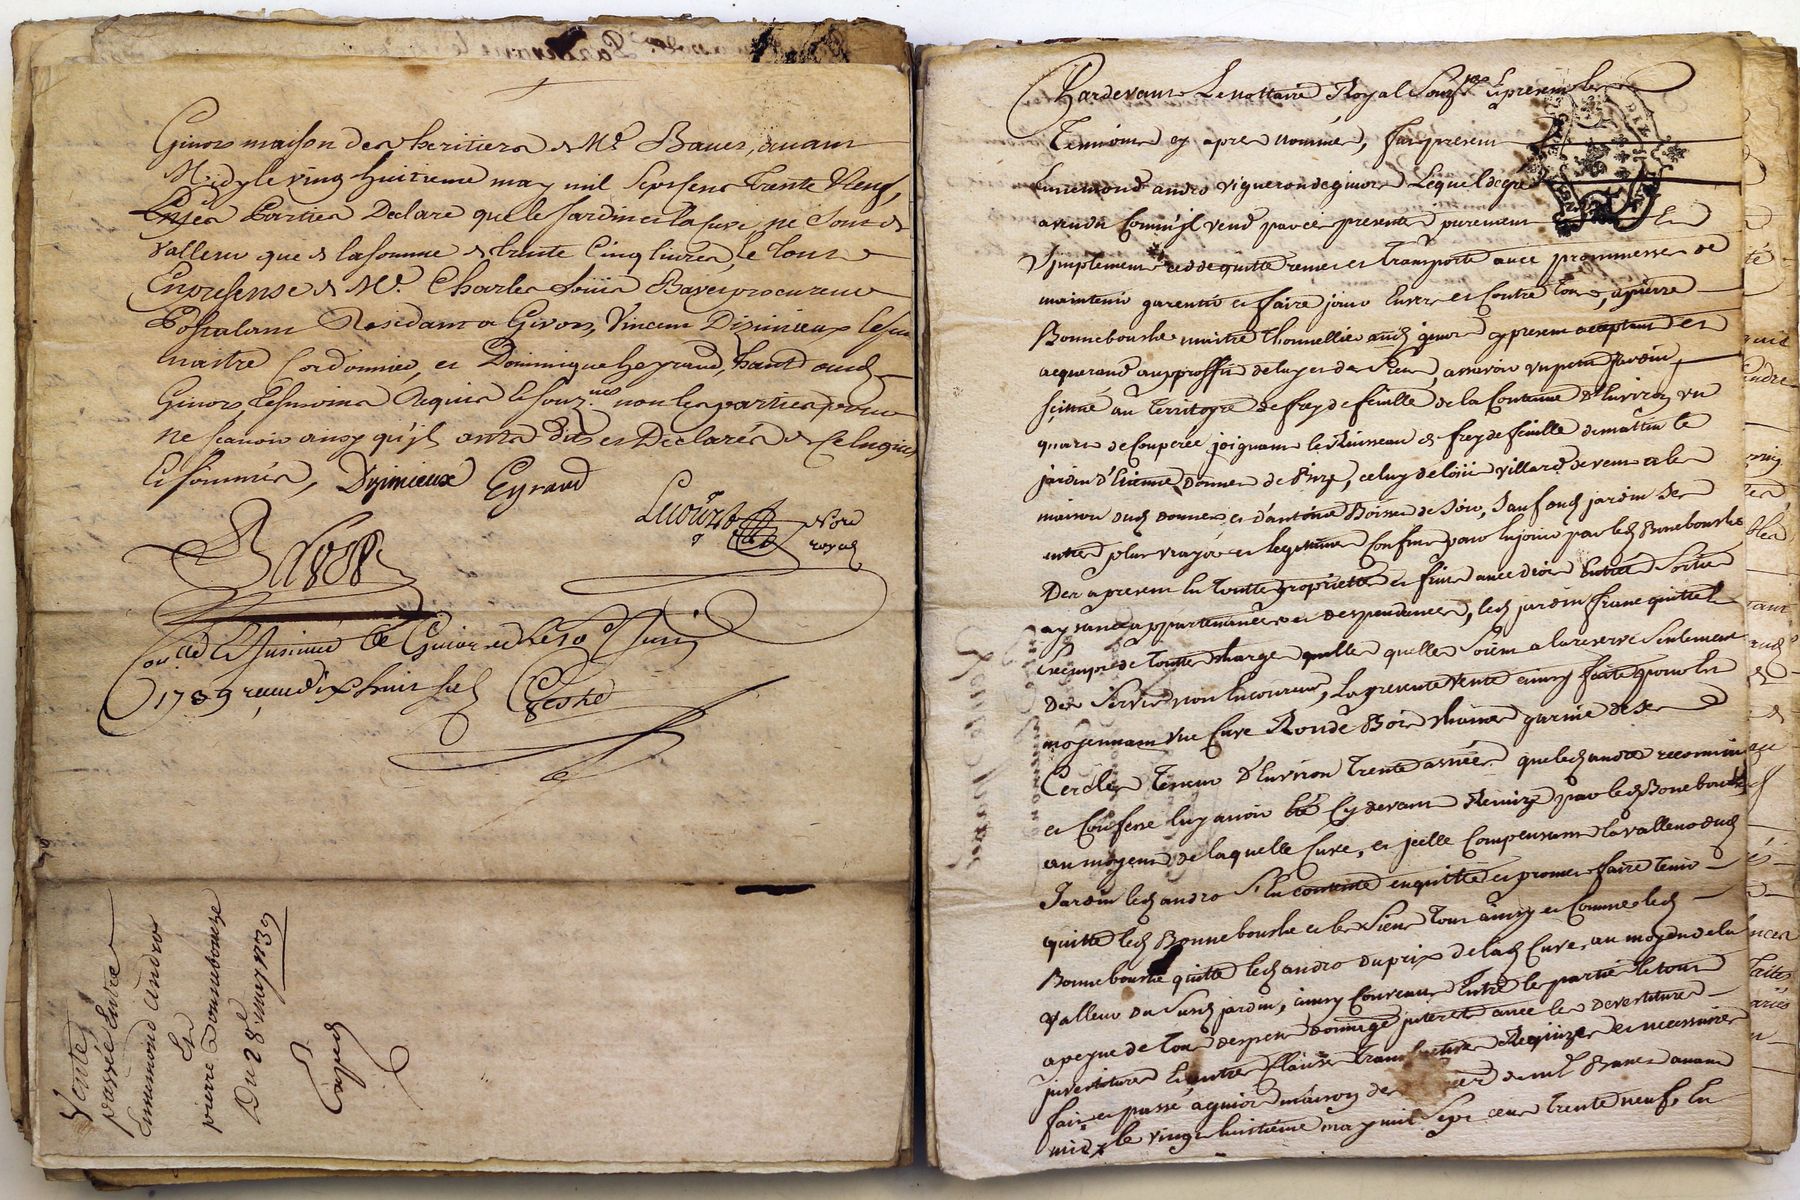 Givors maison des heritiers de Mr. Baues, avant
Midy le vingt huitieme may mil sept sens trente Neuf,
Lesd. Parties Declare que le Jardin et la Cuve ne sont de
valleur que de la somme de trente Cinq livres, le tout
En presense de Mr. Charles Loüis Bayet procureur
Postulant Residant a Givors, Vincent Diziminieux
maitre Cordonnier, et Dominique heyraud, hautd. aud.
Givors, tesmoins Requis le souz.nes non les parties pour
ne scavoir ainsy qu'jls ont dit et Declarés de ce Enquis
et sommés, Dijimieux Eyraud
Bayet
Lecourt Nore
royal
Con.llé et Jnsinué a Givors le 10e Juin
1739 receu dix huit sols
Vente
passée Entre
Ennemond andro
Et
pierre Bonnebouche
Du 28e may 1739
Pardevant Le nottaire Royal Souz.né Et present les
Temoins cy apres nommés, fut present
Ennemond andro vigneron de givors Lequel de gré
a vendu Comm'jl vend par ces presente purement Et
Simplement cedde quitte remet et Transporte avec prommesse de
maintenir garentir et faire jouir Envers et Contre tous, a pierre
Bonnebouche maitre thonnellier aud. givors cy present acceptant et
acquerand au proffit de luy et des siens, assavoir un petit Jardin,
scittué au Territoyre de frey de feüille de la Contenue D'Environ un
quart de Couperée joignant le Ruisseau de frey de feüille de matin le
jardin d'Etienne Donnet de bize, celuy de loüis Villard de vent et la
maison dud. Donnet et d'antoine Boiron de soir, Sauf aud. jardin Ses
autres plus vrays et legitimes Confins pour En jouir par led. Bonnebouche
Des a present En toutte proprietté et fruit avec droit Entrée Sortie
aysance appartenances et despendances, led. jardin franc quitte Et
Exempt de toutte charge quelle quelles soient a la reserve Seulement
Des Servis non Encourus, La presente Vente ainsy faitte pour Et
moyennant une Cuve Ronde Bois chaine garnie de Ses
Cercles Teneur D'Environ Trente asnées que led. andro reconnoit
et Confesse luy avoir Eté Cy devant Remize par led. Bonnebouche
au moyen de laquelle Cuve, et jcelle Compensant la valleur dud.
Jardin led. andro S'En contente en quitte et promet faire Tenir
quitte led. Bonnebouche et les Siens tout ainsy et Comme led.
Bonnebouche quitte led. andro du prix de lad. Cuve au moyen de la
valleur du Susd. jardin, ainsy Convenu Entre les parties le tout
a peyne de tous despens domage jnterets avec les devestiture
jnvestiture Et autre Clause translative Requize et necessaire
fait et passé a givors maison des heritiers de mr. Baues avant
midy le vingt huitieme may mil Sept cent trente neuf, Les